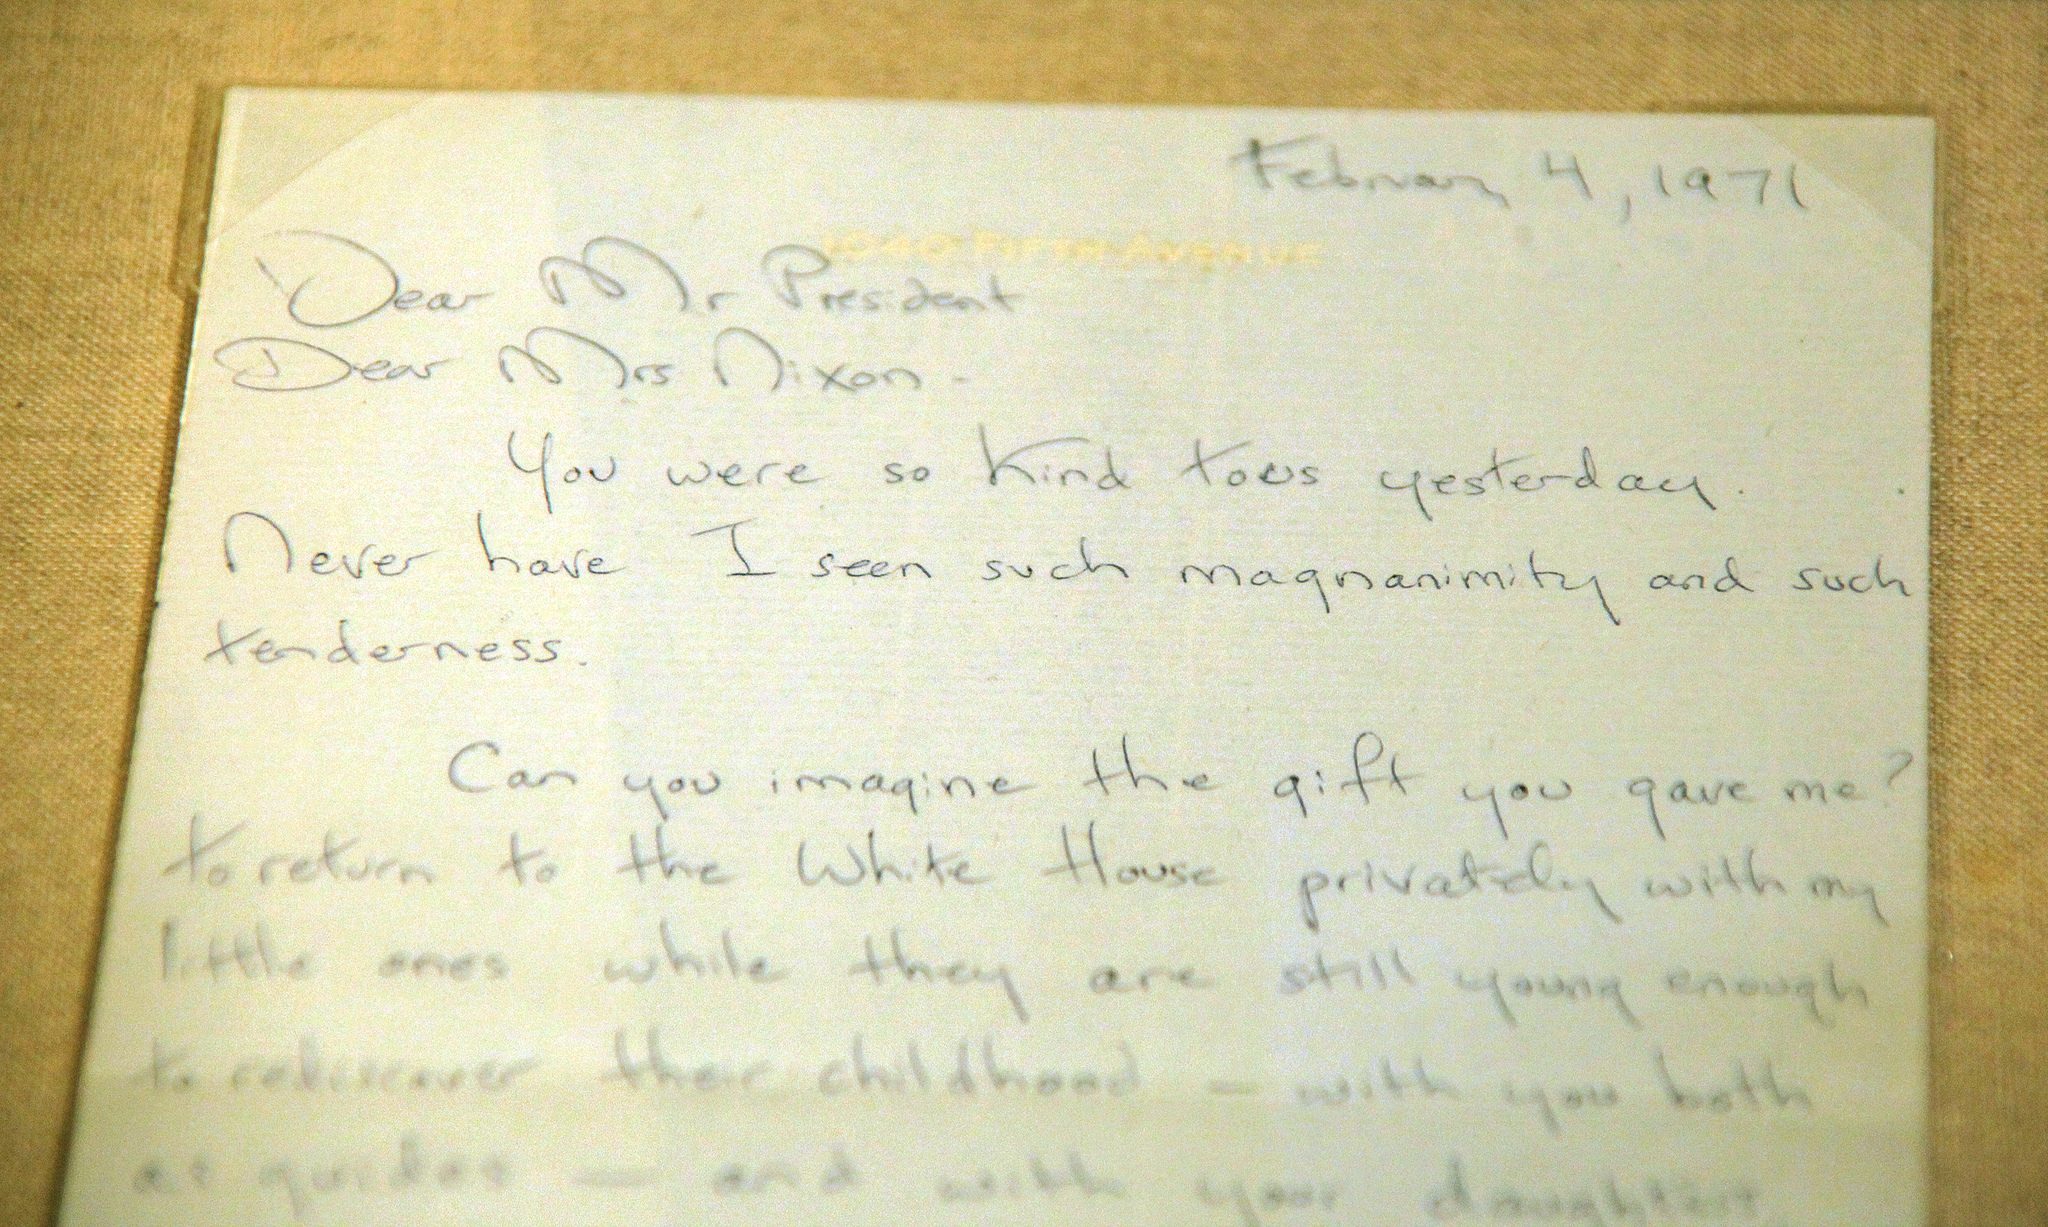 February 4, 1971
1040 FIFTH AVENUE
Dear Mr President
Dear Mrs Nixon -
You were so kind to us yesterday.
Never have I seen such magnanimity and such
tenderness.
Can you imagine the gift you gave me?
to return to the White House privately with my
little ones while they are still young enough
to rediscover their childhood - with you both
as guides - and with your daughters